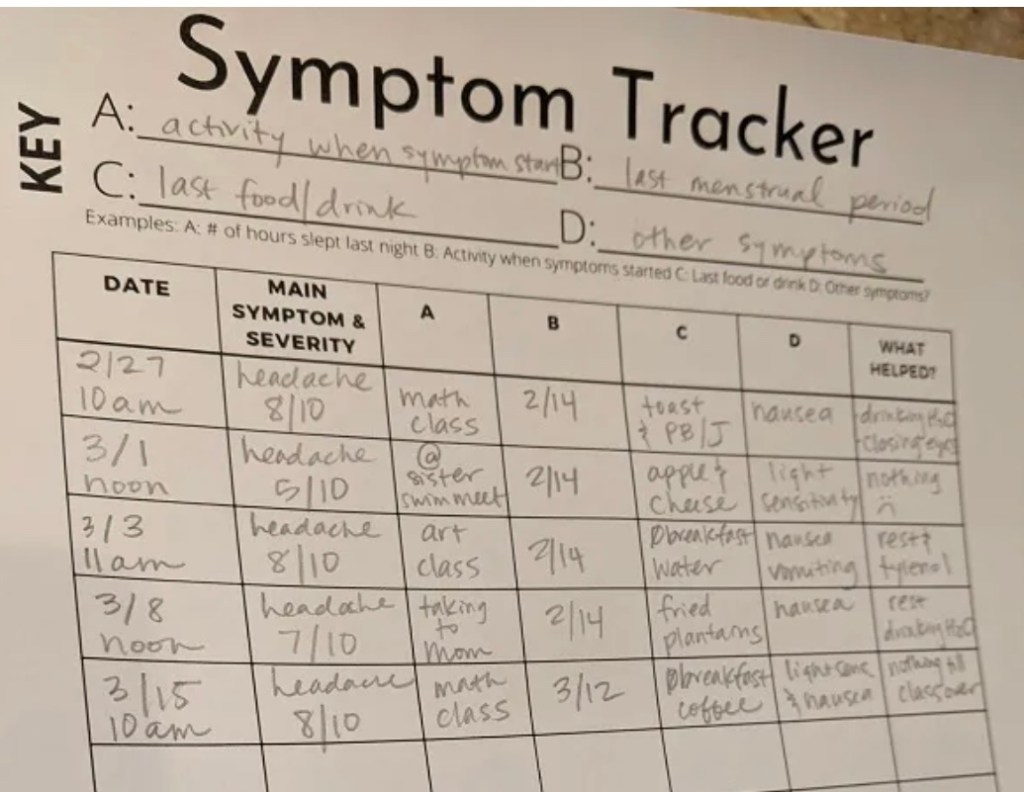 Symptom Tracker
KEY
A: activity when symptom start
B: last menstrual period
C: last food/drink
D: other symptoms
Examples: A: # of hours slept last night B: Activity when symptoms started C: Last food or drink D: Other symptoms?
DATE
MAIN
SYMPTOM &
SEVERITY
A
B
C
D
WHAT
HELPED?
2/27
10am
headache
8/10
math
class
2/14
toast
& PB/J
nausea
drinking H2O
closing eyes
3/1
noon
headache
5/10
@
sister
swim meet
2/14
apple &
cheese
light
sensitivity
nothing
3/3
11am
headache
8/10
art
class
2/14
Øbreakfast
water
nausea
vomiting
rest &
tylenol
3/8
noon
headache
7/10
talking
to
mom
2/14
fried
plantains
nausea
rest
drinking H2O
3/15
10am
headache
8/10
math
class
3/12
Øbreakfast
coffee
light sens
& nausea
nothing till
class over